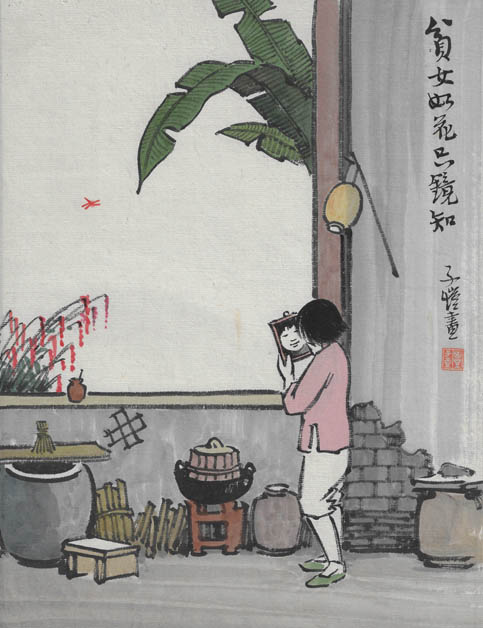 貧女如花只鏡知
子愷畫